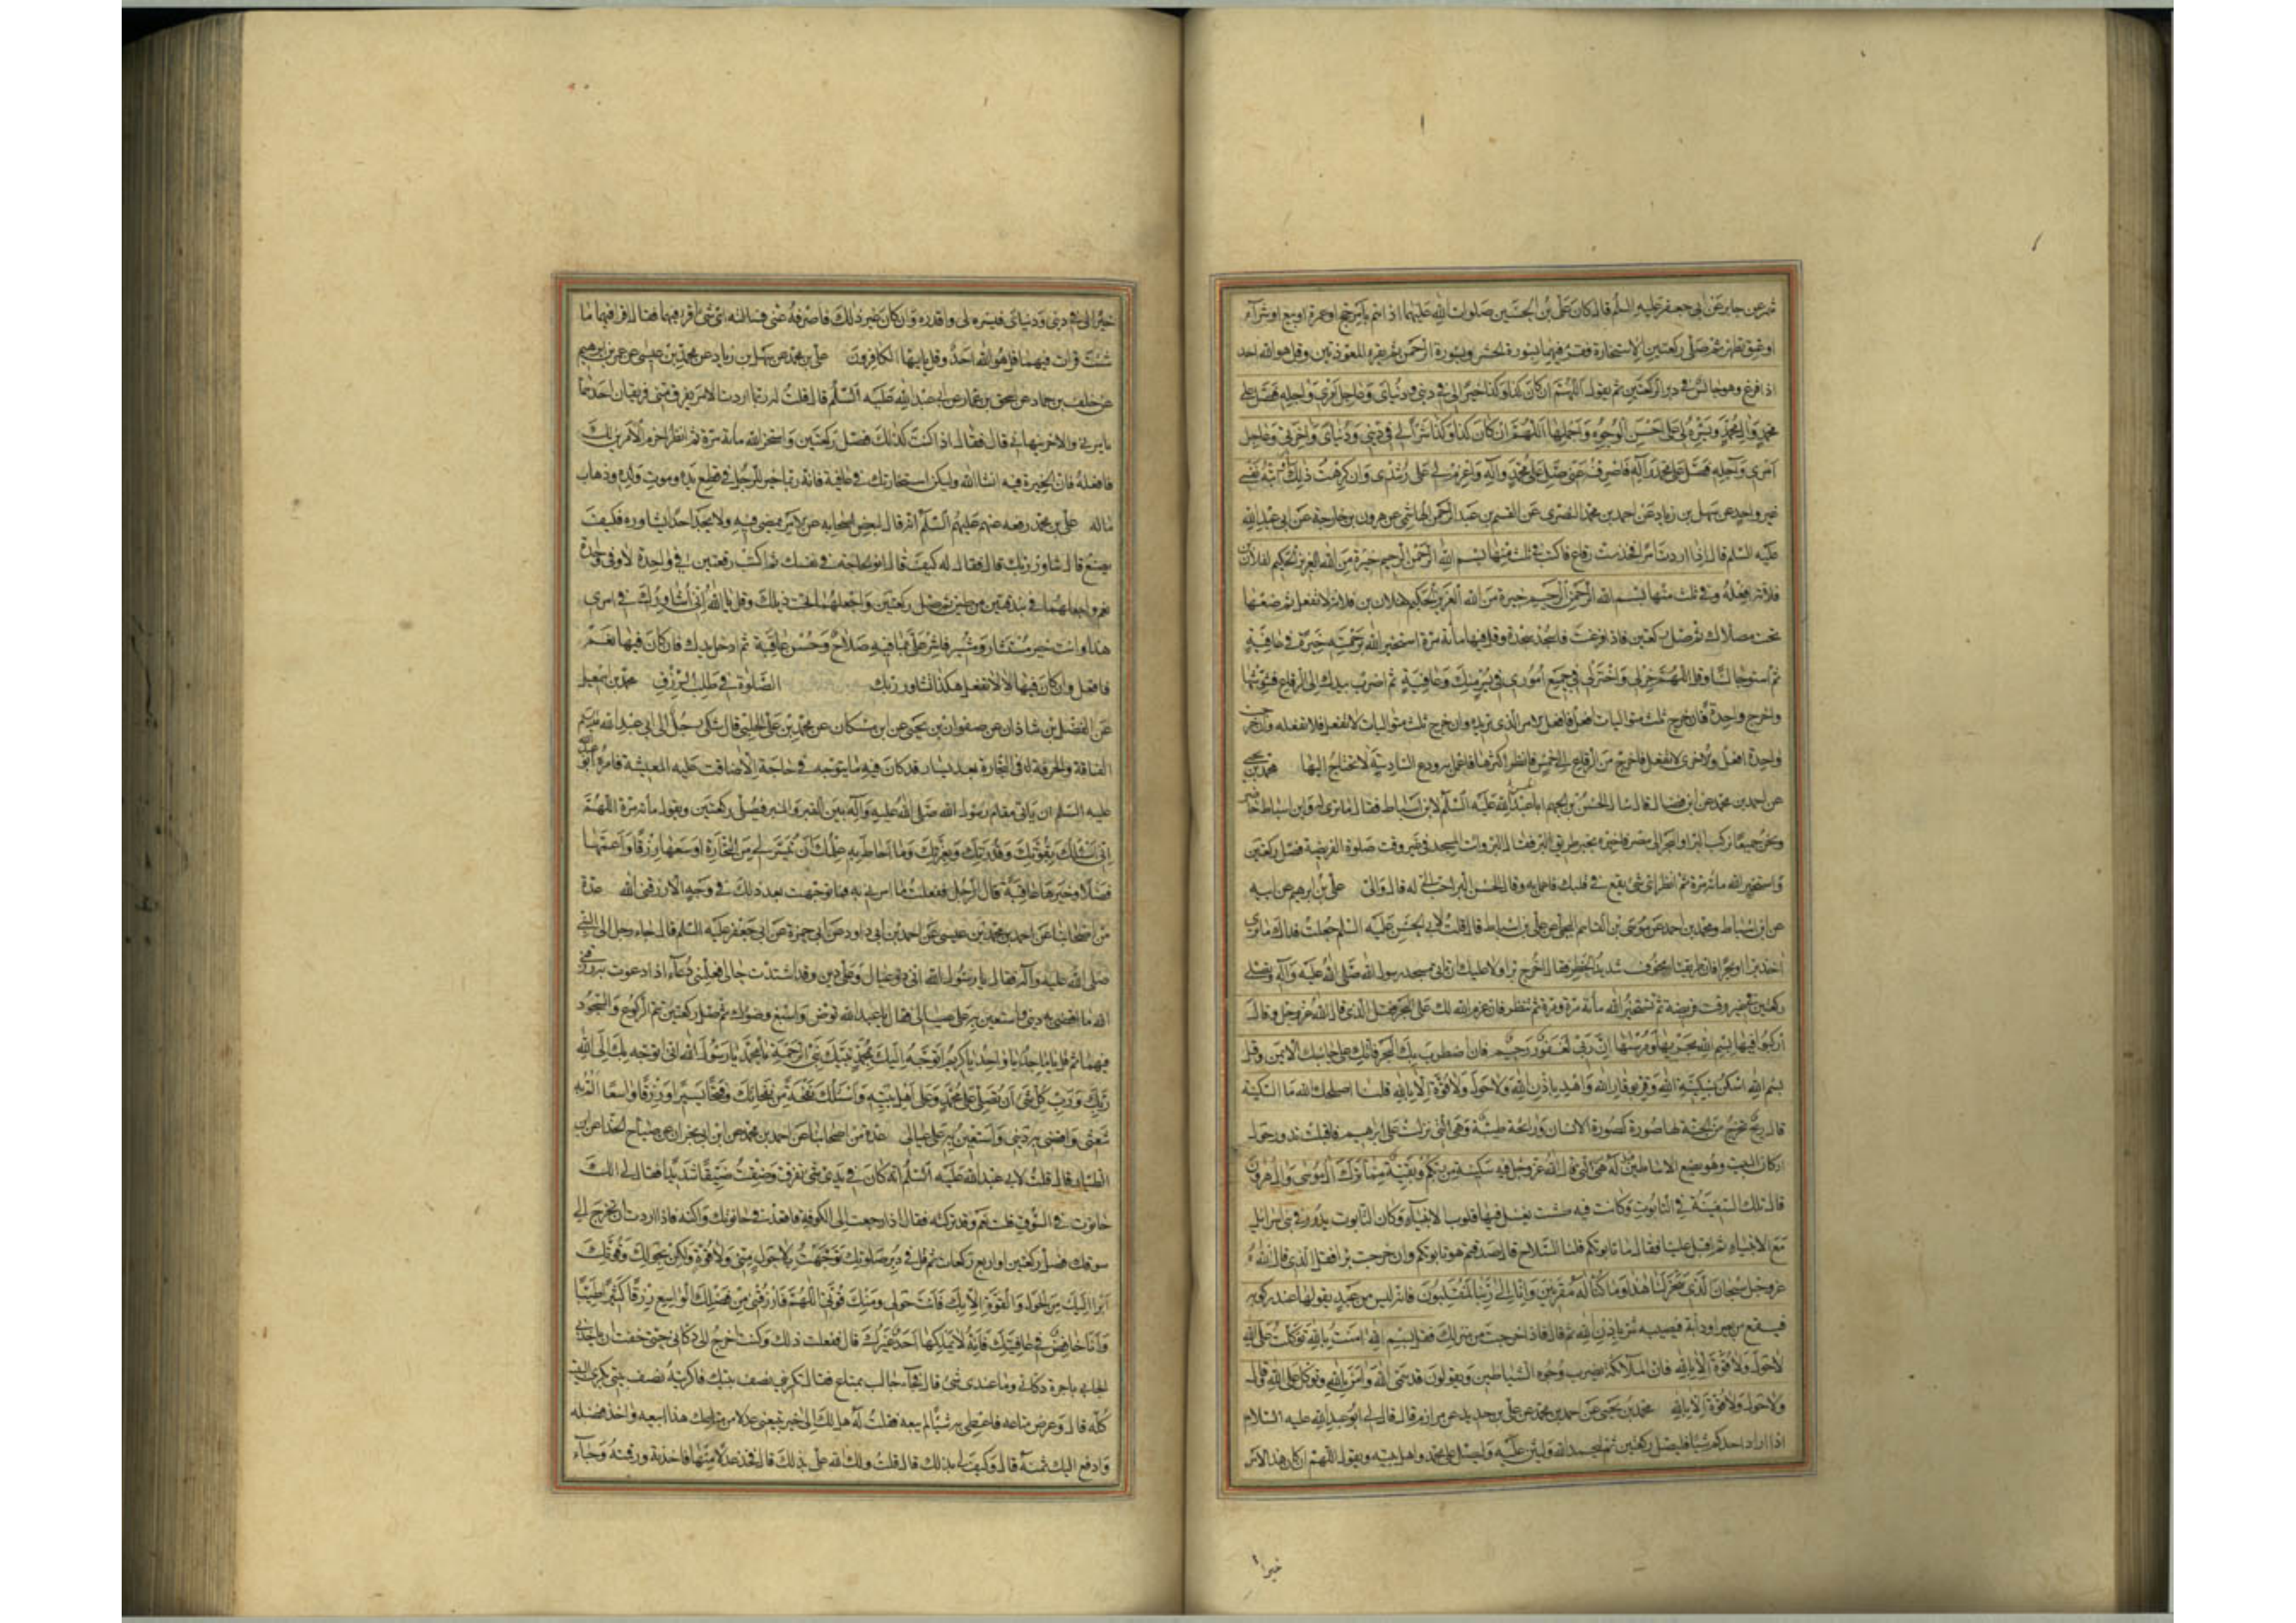 شمر عن جابر عن ابي جعفر عليه السلم قال كان علي بن الحسين صلوات الله عليهما اذا هم بامر حج او عمرة او بيع او شرآء
او عتق تطهر ثم صلى ركعتين الاستخارة فقرء فيهما بسورة الحشر وبسورة الرحمن ثم يقرء المعوذتين وقل هو الله احد
اذا فرغ وهو جالس في دبر الركعتين ثم يقول اللهم ان كان كذا وكذا خيرا لى في ديني ودنياى وعاجل امرى وآجله فصل على
محمد واله محمد ويسره لى على احسن الوجوه واجملها اللهم ان كان كذا وكذا شرا لي في ديني ودنياى واخرتي وعاجل
امرى وآجله فصل على محمد وآله فاصرفه عنى صل على محمد وآله واعزم لي على رشدى وان كرهت ذلك او ابته نفسي
غير واحد عن سهل بن زياد عن احمد بن محمد البصرى عن القسم بن عبد الرحمن الهاشمى عن هرون بن خارجة عن ابي عبد الله
عليه السلم قال اذا اردت امرا فخذ ست رقاع فاكتب في ثلث منها بسم الله الرحمن الرحيم خيرة من الله العزيز الحكيم لفلان بن
فلانة افعله وفي ثلث منها بسم الله الرحمن الرحيم خيرة من الله العزيز الحكيم لفلان بن فلانة لا تفعل ثم ضعها
تحت مصلاك ثم صل ركعتين فاذا فرغت فاسجد سجدة وقل فيها مأة مرة استخير الله برحمته خيرة في عافية
ثم استو جالسا وقل اللهم خر لى واختر لى في جميع امورى في يسر منك وعافية ثم اضرب بيدك الى الرقاع فشوشها
واخرج واحدة فان خرج ثلث متواليات افعل فافعل الامر الذى تريده وان خرج ثلث متواليات لا تفعل فلا تفعله وان خرجت
واحدة افعل والاخرى لا تفعل فاخرج من الرقاع الى خمس فانظر اكثرها فاعمل به ودع السادسة لا تحتاج اليها محمد بن يحيى
عن احمد بن محمد عن ابن فضال قال سال الحسن بن الجهم ابا الحسن عليه السلم لابن اسباط فقال ما ترى له وابن اسباط حاضر
ونحن جميعا نركب البر او البحر الى مصر فاخبره بخبر طريق البر فقال البر وائت المسجد في غير وقت صلوة الفريضة فصل ركعتين
واستخير الله مأة مرة ثم انظر اى شئ يقع في قلبك فاعمل به وقال الحسن البر احب الي له قال والى علي بن ابرهيم عن ابيه
عن ابن اسباط ومحمد بن احمد عن موسى بن القاسم البجلي عن علي بن اسباط قال قلت لابي الحسن عليه السلم جعلت فداك ما ترى
اخذ برا او بحرا فان طريقنا مخوف شديد الخطر فقال اخرج برا ولا عليك ان تاتى مسجد رسول الله صلى الله عليه وآله وتصلى
ركعتين في غير وقت فريضة ثم تستخير الله مأة مرة ومرة ثم تنظر فان عزم الله لك على البحر فقل الذى قال الله عز وجل وقال
اركبوا فيها بسم الله مجريها ومرسيها ان ربي لغفور رحيم فان اضطرب بك البحر فاتك على جانبك الايمن وقل
بسم الله اسكن بسكينة الله وقر بوقار الله واهدء باذن الله ولا حول ولا قوة الا بالله قلنا اصلحك الله ما السكينة
قال ريح تخرج من الجنة لها صورة كصورة الانسان ورائحة طيبة وهى التى نزلت على ابرهيم فاقبلت تدور حول
اركان البيت وهو يضع الاساطين قيل له هى التي قال الله عز وجل فيه سكينة من ربكم وبقية مما ترك آل موسى وآل هرون
قال تلك السكينة في التابوت وكانت فيه طشت يغسل فيها قلوب الانبياء وكان التابوت يدور في بنى اسرائيل
مع الانبياء ثم اقبل علينا فقال ما تابوتكم قلنا السلاح قال صدقتم هو تابوتكم وان خرجت برا فقل الذى قال الله
عز وجل سبحان الذى سخر لنا هذا وما كنا له مقرنين وانا الى ربنا لمنقلبون فانه ليس من عبد يقولها عند ركوبه
فيقع من بعير او دابة فيصيبه شئ باذن الله ثم قال فاذا خرجت من منزلك فقل بسم الله امنت بالله توكلت على الله
لا حول ولا قوة الا بالله فان الملآئكة تضرب وجوه الشياطين ويقولون قد سمى الله وآمن بالله وتوكل على الله وقال
ولا حول ولا قوة الا بالله محمد بن يحيى عن احمد بن محمد عن علي بن حديد عن مرازم قال قال لي ابو عبد الله عليه السلام
اذا اراد احدكم شيئا فليصل ركعتين ثم ليحمد الله وليثن عليه وليصل على محمد واهل بيته ويقول اللهم ان كان هذا الامر
خيرا
خيرا لى في دينى ودنياى فيسره لى واقدره وان كان غير ذلك فاصرفه عنى فسالته اى شئ اقرء فيهما فقال اقرا فيهما ما
شئت قرات فيهما قل هو الله احد وقل يا ايها الكافرون علي بن محمد عن سهل بن زياد عن محمد بن عيسى عن عمرو بن ابرهيم
عن خلف بن حماد عن اسحق بن عمار عن ابي عبد الله عليه السلم قال قلت له ربما اردت الامر يفرق منى فريقان احدهما
يامرني والاخر ينهاني قال فقال اذا كنت كذلك فصل ركعتين واستخر الله مأة مرة ثم انظر احزم الامرين لك
فافعله فان الخيرة فيه انشا الله وليكن استخارتك في عافية فانه ربما خير للرجل في قطع يده وموت ولده وذهاب
ماله علي بن محمد رفعه عنهم عليهم السلم انه قال لبعض اصحابه عن الامر يمضى فيه ولا يجد احدا يشاوره فكيف
يصنع قال شاور ربك قال فقال له كيف قال انو الحاجة في نفسك ثم اكتب رقعتين في واحدة لا وفي واحدة
نعم واجعلهما في بندقتين من طين ثم صل ركعتين واجعلهما تحت ذيلك وقل يا الله انى اشاورك في امرى
هذا وانت خير مستشار ومشير فاشر علي بما فيه صلاح وحسن عاقبة ثم ادخل يدك فان كان فيها نعم
فافعل وان كان فيها لا لا تفعل هكذا تشاور ربك الصلوة في طلب الرزق محمد بن اسمعيل
عن الفضل بن شاذان عن صفوان بن يحيى عن ابن مسكان عن محمد بن علي الحلبي قال شكى رجل الى ابي عبد الله عليه السلم
الفاقة والحرفة في التجارة بعد يسار قد كان فيه ما يتوجه في حاجة الا ضاقت عليه المعيشة فامره ابو عبد الله
عليه السلم ان ياتى مقام رسول الله صلى الله عليه وآله بين القبر والمنبر فيصلى ركعتين ويقول مأة مرة اللهم
انى اسئلك بقوتك وقدرتك وبعزتك وما احاط به علمك ان تيسر لى من التجارة اوسعها رزقا واعمها
فضلا وخيرها عاقبة قال الرجل ففعلت ما امرني به فما توجهت بعد ذلك في وجه الا رزقنى الله عدة
من اصحابنا عن احمد بن محمد بن عيسى عن احمد بن ابي داود عن ابي حمزة عن ابي جعفر عليه السلم قال جاء رجل الى النبي
صلى الله عليه وآله فقال يا رسول الله انى ذو عيال وعلى دين وقد اشتدت حالى فعلمنى دعآء اذا دعوت به رزقنى
الله ما اقضى به دينى واستعين به على عيالى فقال يا عبد الله توض واسبغ وضوءك ثم صل ركعتين تتم الركوع والسجود
فيهما ثم قل يا ماجد يا واحد يا كريم اتوجه اليك بمحمد نبيك نبى الرحمة يا محمد يا رسول الله انى اتوجه بك الى الله
ربك ورب كل شئ ان تصلى على محمد وعلى اهل بيته واسئلك نفحة من نفحاتك وفتحا يسيرا ورزقا واسعا الم به
شعثى واقضى به دينى واستعين به على عيالى عدة من اصحابنا عن احمد بن محمد عن ابن ابي نجران عن صباح الحذاء عن ابن
الطيار قال قلت لابي عبد الله عليه السلم انه كان في يدى شئ تفرق وضقت ضيقا شديدا فقال لى الك
حانوت في السوق قلت نعم وقد تركته فقال اذا رجعت الى الكوفة فاقعد في حانوتك واكنسه فاذا اردت ان تخرج الى
سوقك فصل ركعتين او اربع ركعات ثم قل في دبر صلوتك توجهت بلا حول منى ولا قوة ولكن بحولك وقوتك
ابرا اليك من الحول والقوة الا بك فانت حولى ومنك قوتى اللهم فارزقنى من فضلك الواسع رزقا كثيرا طيبا
وانا خافض في عافيتك فانه لا يملكها احد غيرك قال ففعلت ذلك وكنت اخرج الى دكانى حتى خفت ان ياخذنى
الجابي باجرة دكانى وما عندى شئ قال فجآء جالب بمتاع فقال تكريني نصف بيتك فاكريته نصف بيتى بكرى البيت
كله قال وعرض متاعه فاعطى به شيئا لم يبعه فقلت له هل لك الى خير تبيعنى عدلا من متاعك هذا ابيعه واخذ فضله
وادفع اليك ثمنه قال وكيف لى بذلك قال قلت ولك الله على بذلك قال فخذ عدلا منها فاخذته ورقمته وجآء